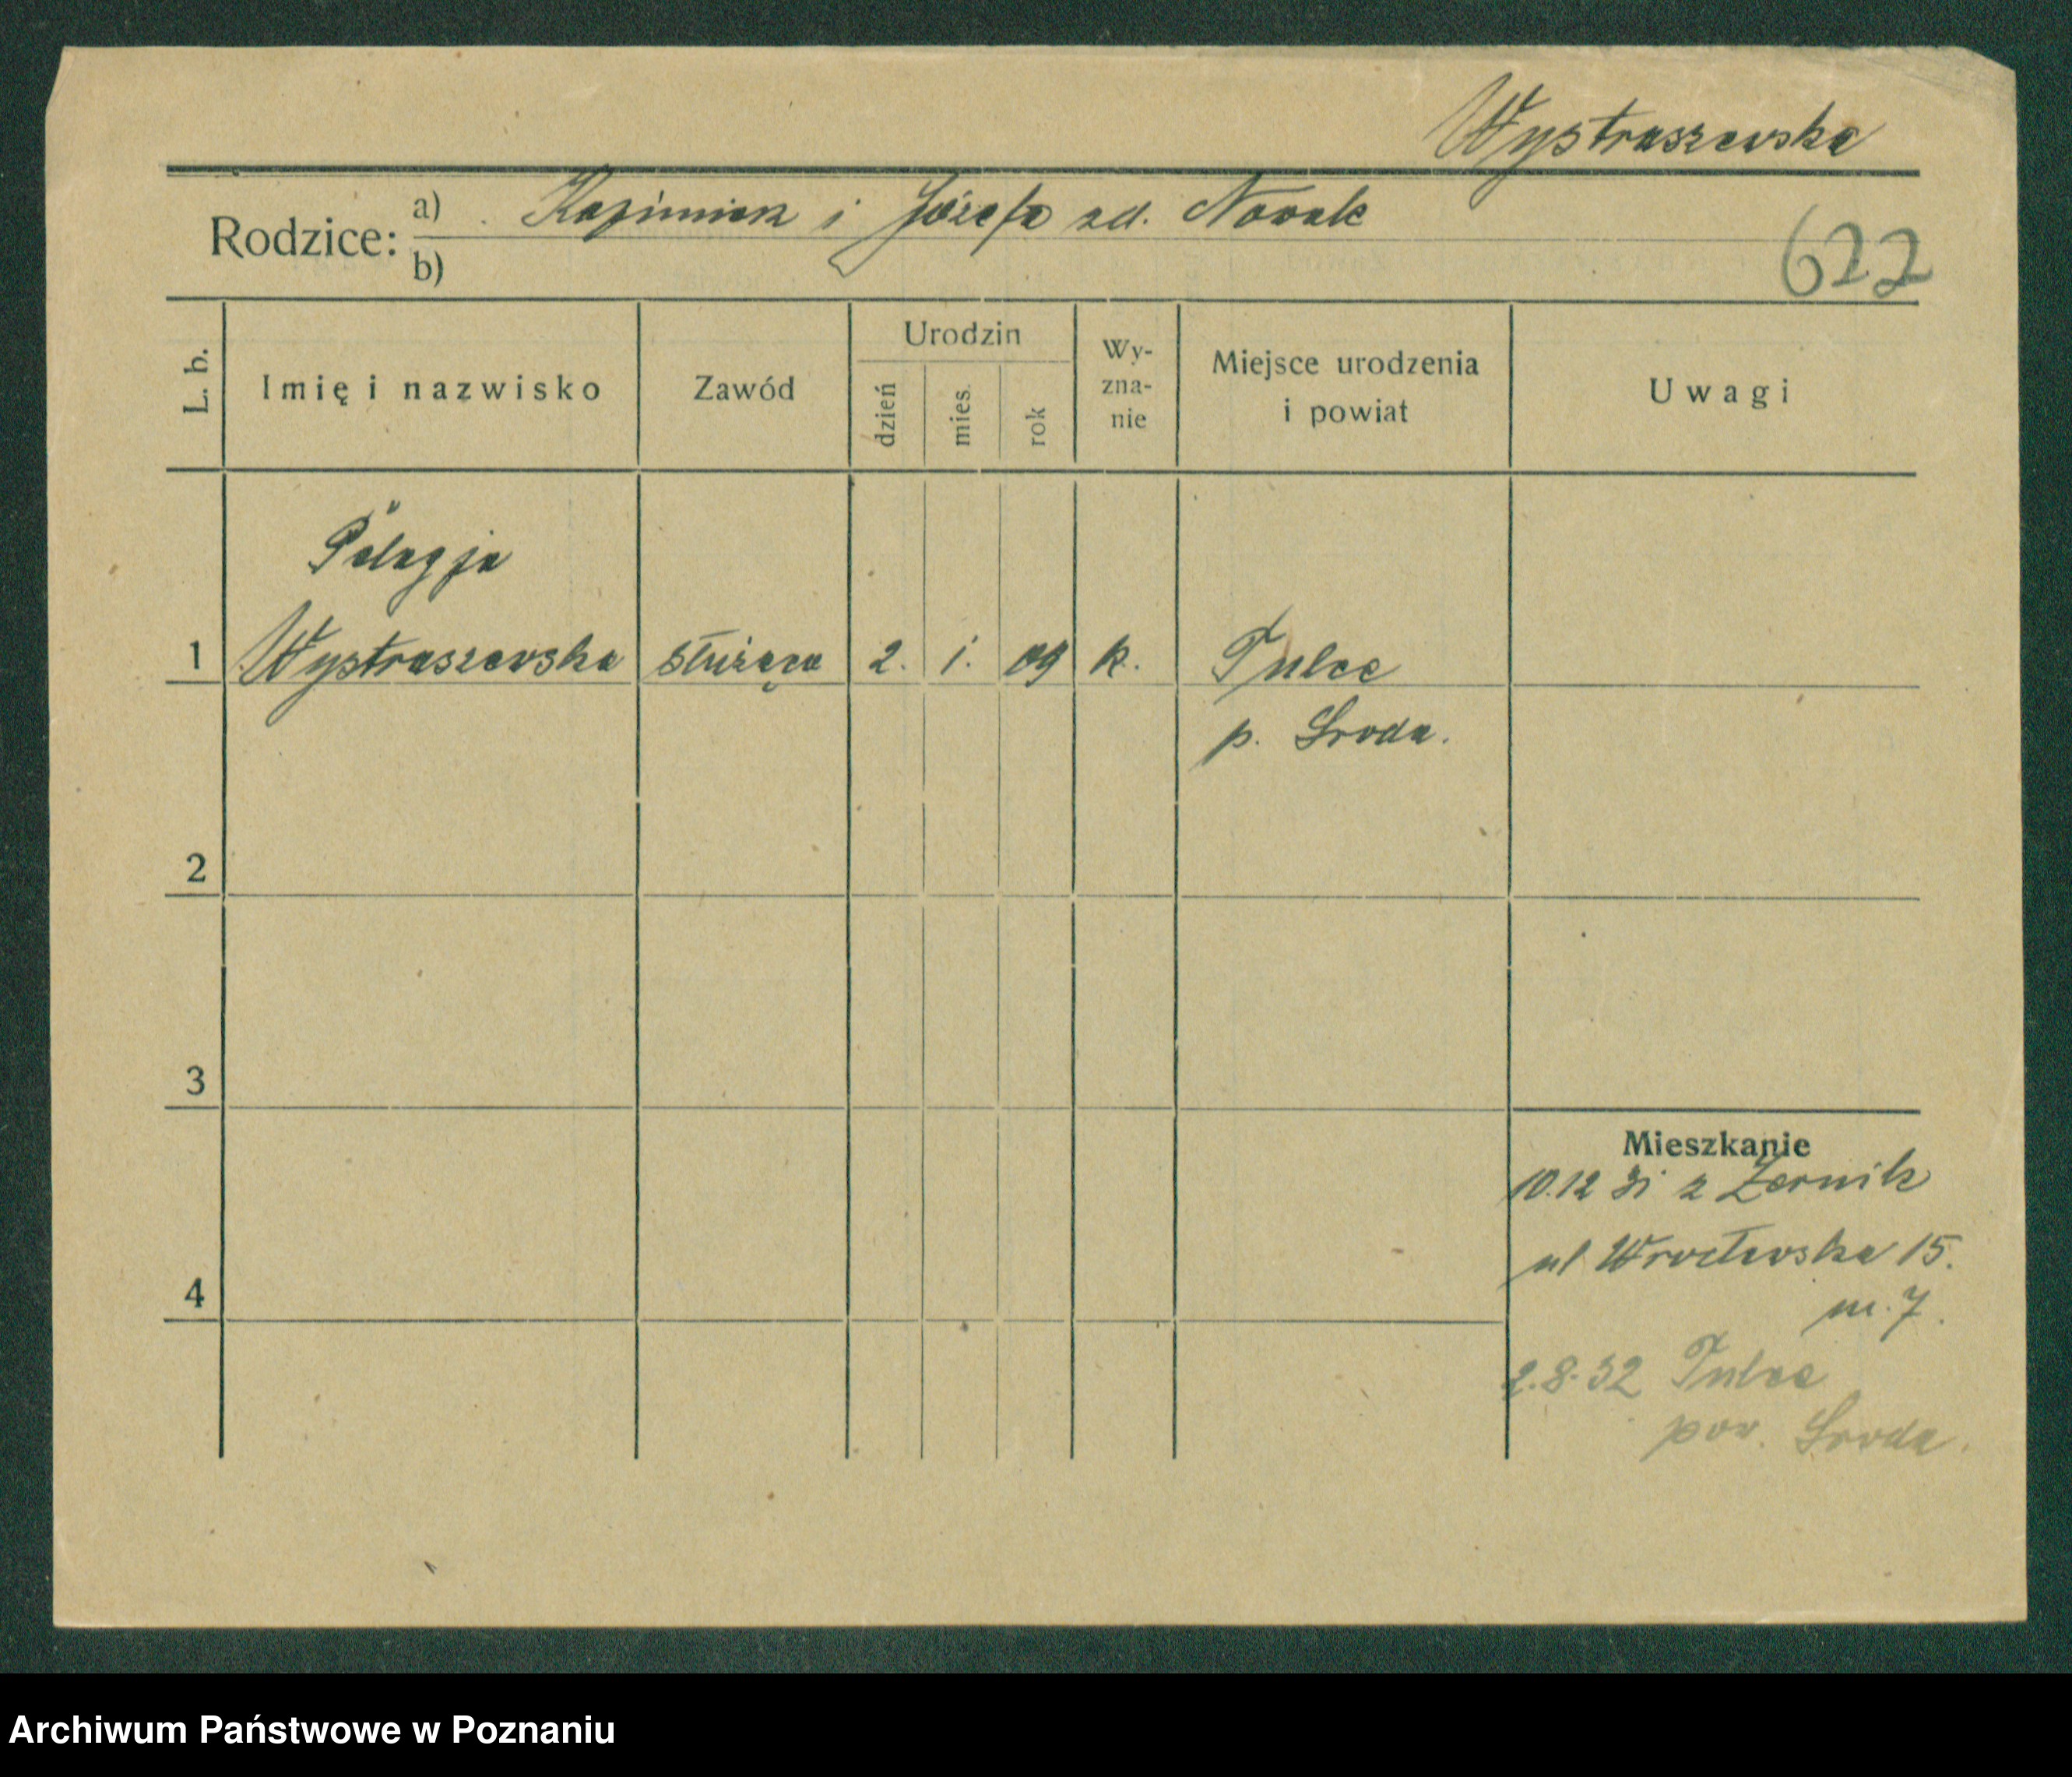 Wystraszewska
Rodzice: a) Kazimierz i Józefa zd. Nowak
b)
622
L. b.
Imię i nazwisko
Zawód
Urodzin
dzień
mies.
rok
Wy-
zna-
nie
Miejsce urodzenia
i powiat
Uwagi
Pelagja
1 Wystraszewska służąca 2. 1. 09 k. Tulce
p. Sroda.
2
3
Mieszkanie
10.12 31 z Zernik
ul Wrocławska 15.
m. 7.
4
2.8.32 Tulce
pow. Sroda.
Archiwum Państwowe w Poznaniu